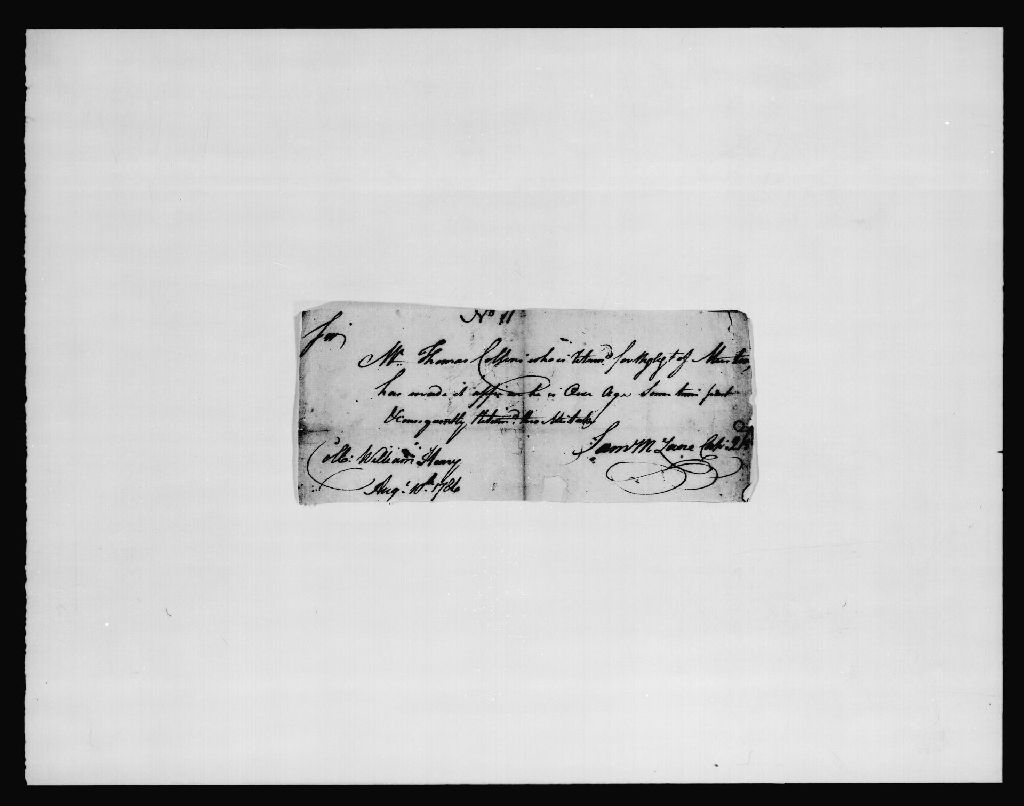 No 11
Sir
Mr. Thomas Collins who is Return'd for Neglgt of Muster,
has made it appear he is Over Age Some time past
& Consequently Return'd this Mistake
Saml McLane Capt.
Collo: William Henry
Augt. 10th 1780